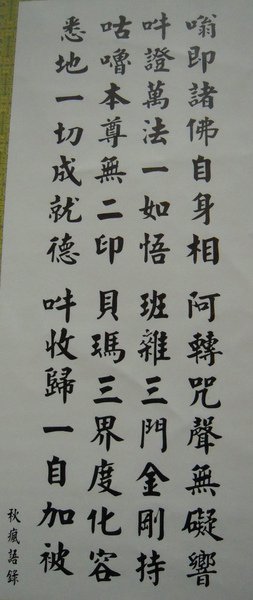 嗡即諸佛自身相 阿轉咒聲無礙響
吽證萬法一如悟 班雜三門金剛持
咕嚕本尊無二印 貝瑪三界度化容
悉地一切成就德 吽收歸一自加被
秋瘋語錄